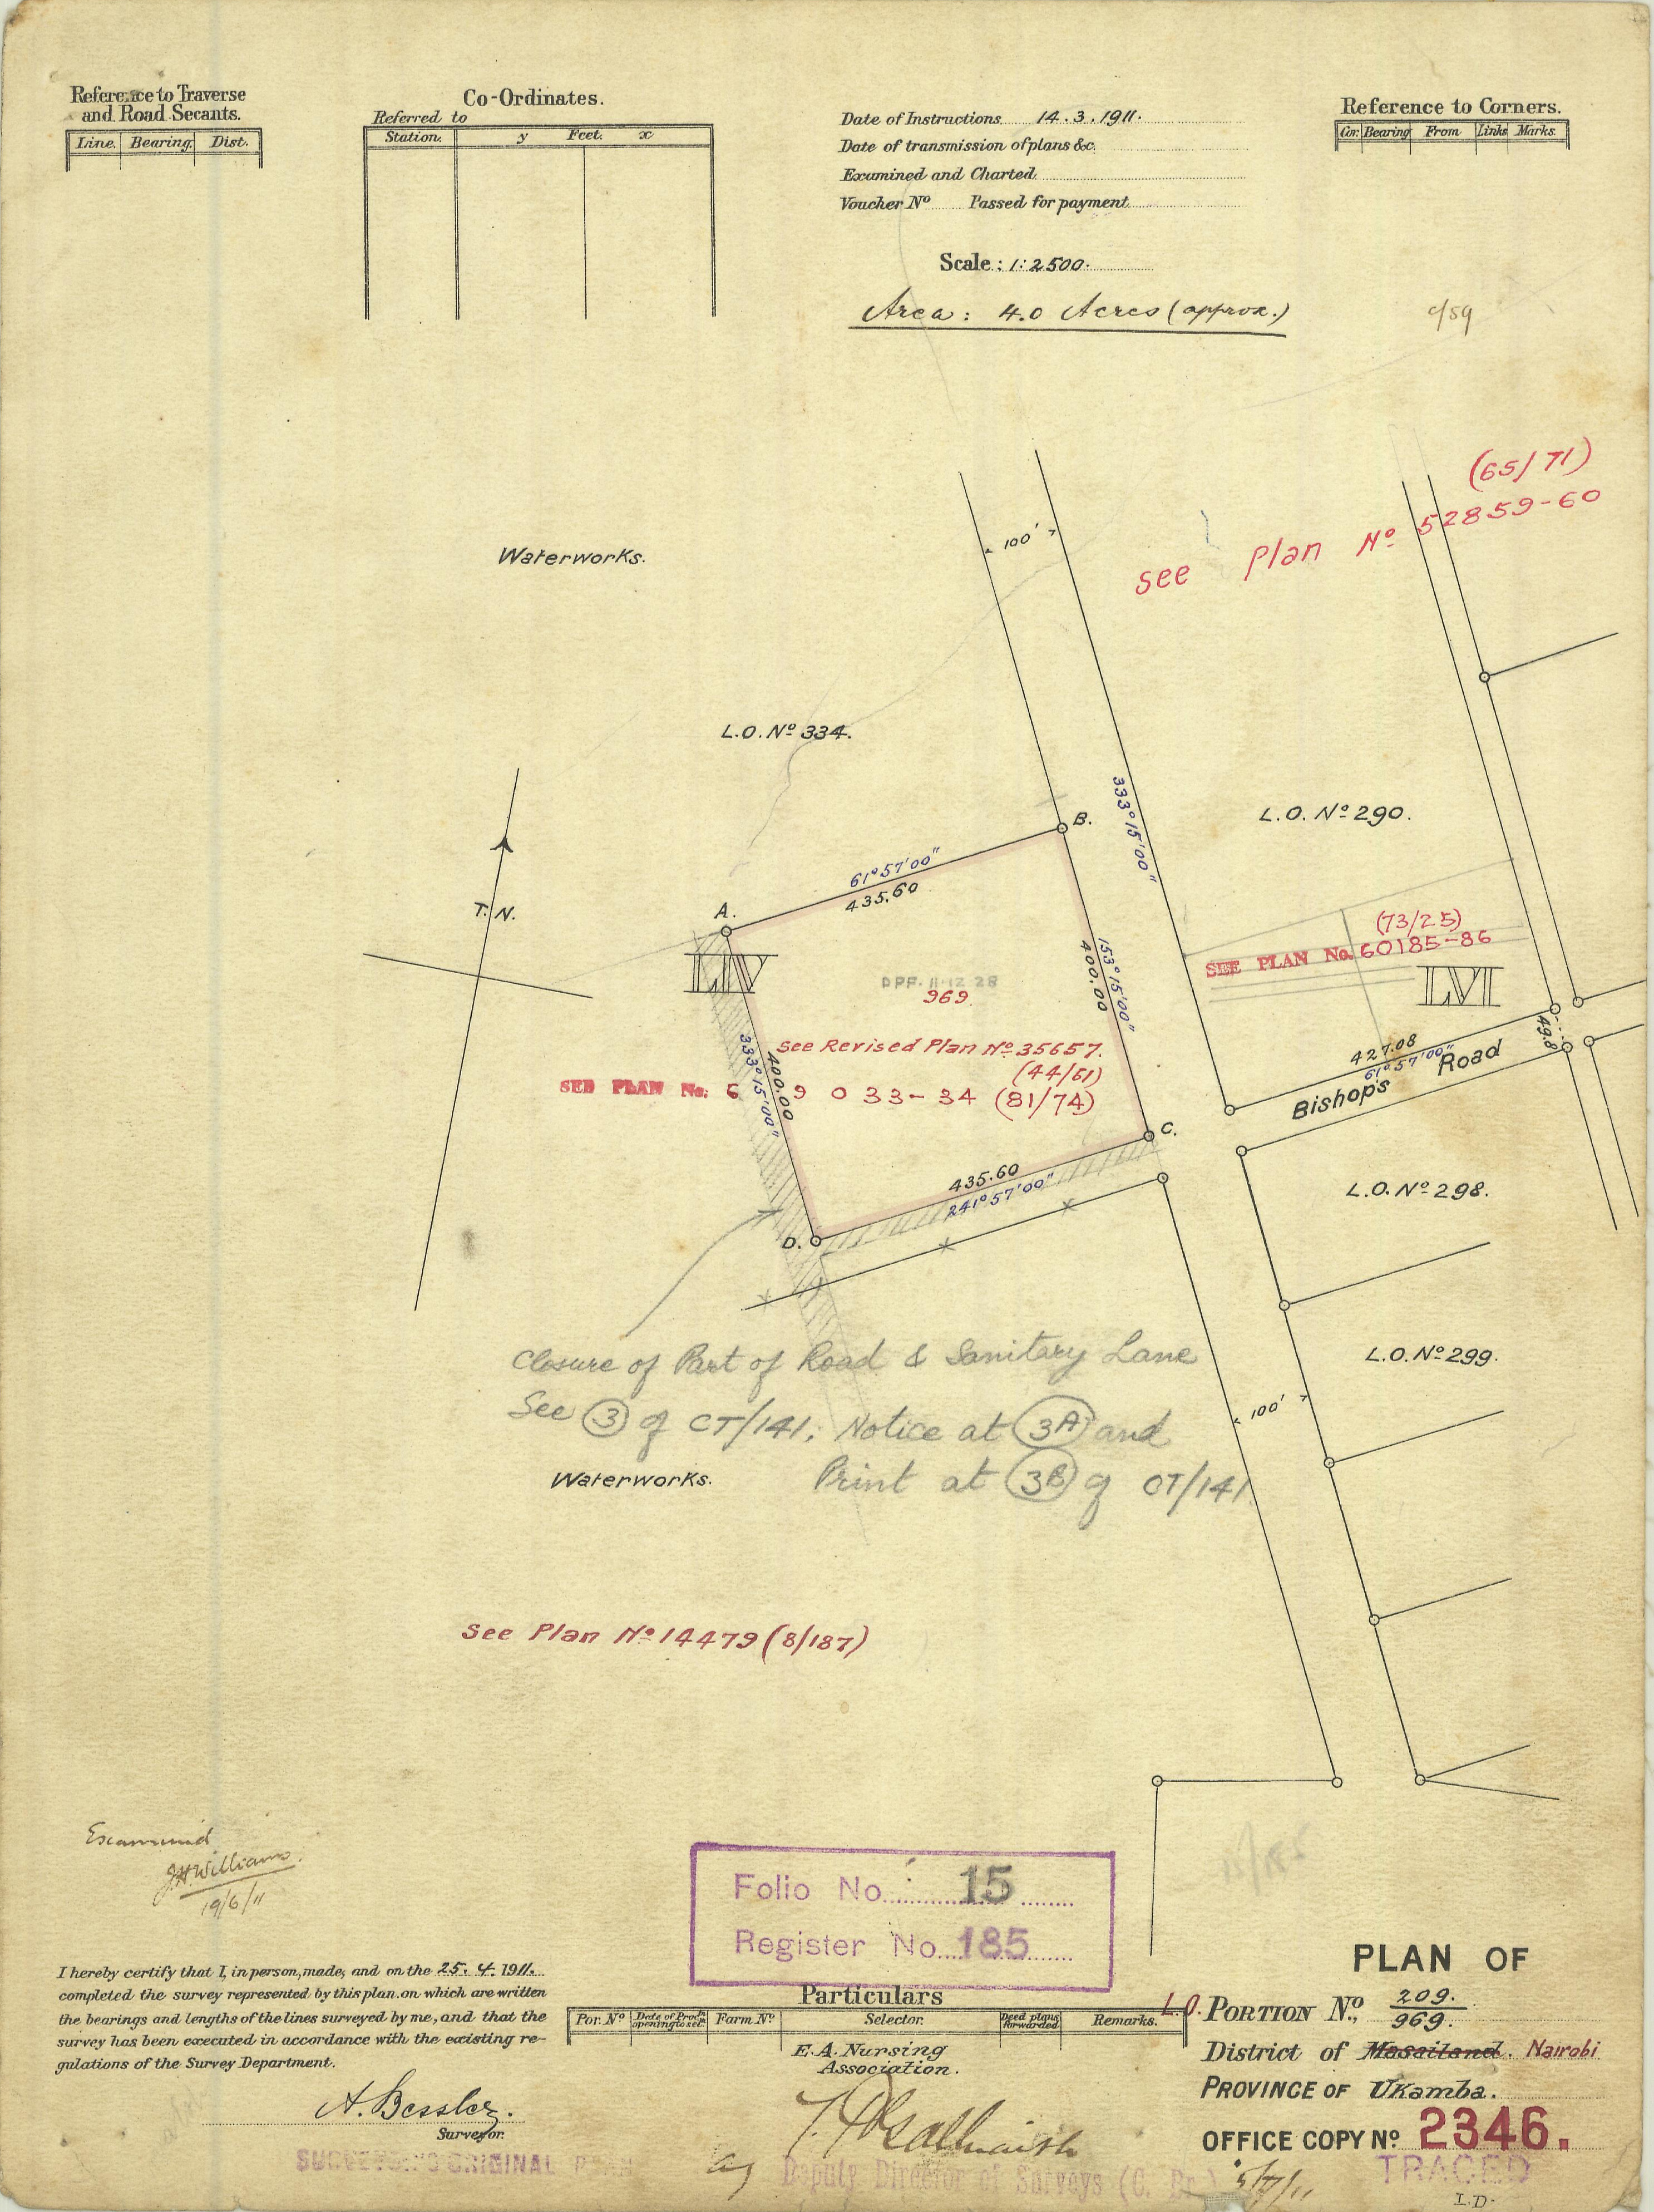 Reference to Traverse
and Road Secants.
Line. Bearing. Dist.
Co-Ordinates.
Referred to
Station. y Feet. x
Date of Instructions 14.3.1911.
Date of transmission of plans &c.
Examined and Charted.
Voucher Nº Passed for payment
Scale: 1:2500.
Area: 4.0 Acres (approx.)
Reference to Corners.
Cor. Bearing From Links Marks.
c/59
(65/71)
see Plan Nº 52859-60
100'
Waterworks.
L.O. Nº 334.
333°15'00"
L.O. Nº 290.
B.
61°57'00"
435.60
A.
T.N.
LIV
153°15'00"
400.00
DPF. 11.12.28
969.
(73/25)
SEE PLAN No. 60185-86
LVI
See Revised Plan Nº 35657.
(44/61)
SEE PLAN No. 69033-34 (81/74)
400.00
333°15'00"
427.08
61°57'00"
49.8
Bishop's Road
C.
435.60
241°57'00"
D.
L.O. Nº 298.
Closure of Part of Road & Sanitary Lane
See 3 of CT/141; Notice at 3A and
Print at 3B of CT/141
L.O. Nº 299.
100'
Waterworks.
See Plan Nº 14479 (8/187)
Examined
J.H.Williams.
19/6/11
Folio No. 15
Register No. 185
I hereby certify that I, in person, made, and on the 25.4.1911.
completed the survey represented by this plan on which are written
the bearings and lengths of the lines surveyed by me, and that the
survey has been executed in accordance with the existing re-
gulations of the Survey Department.
A. Bessler.
Surveyor.
SURVEYOR'S ORIGINAL PLAN
Particulars
Por. Nº Farm Nº Selector. Deed plans forwarded Remarks.
E.A. Nursing
Association.
ag Deputy Director of Surveys (C. Br.) 5/7/11
PLAN OF
L.O. PORTION Nº, 209.
969.
District of Masailand. Nairobi
PROVINCE OF Ukamba.
OFFICE COPY Nº 2346.
TRACED
L.D.